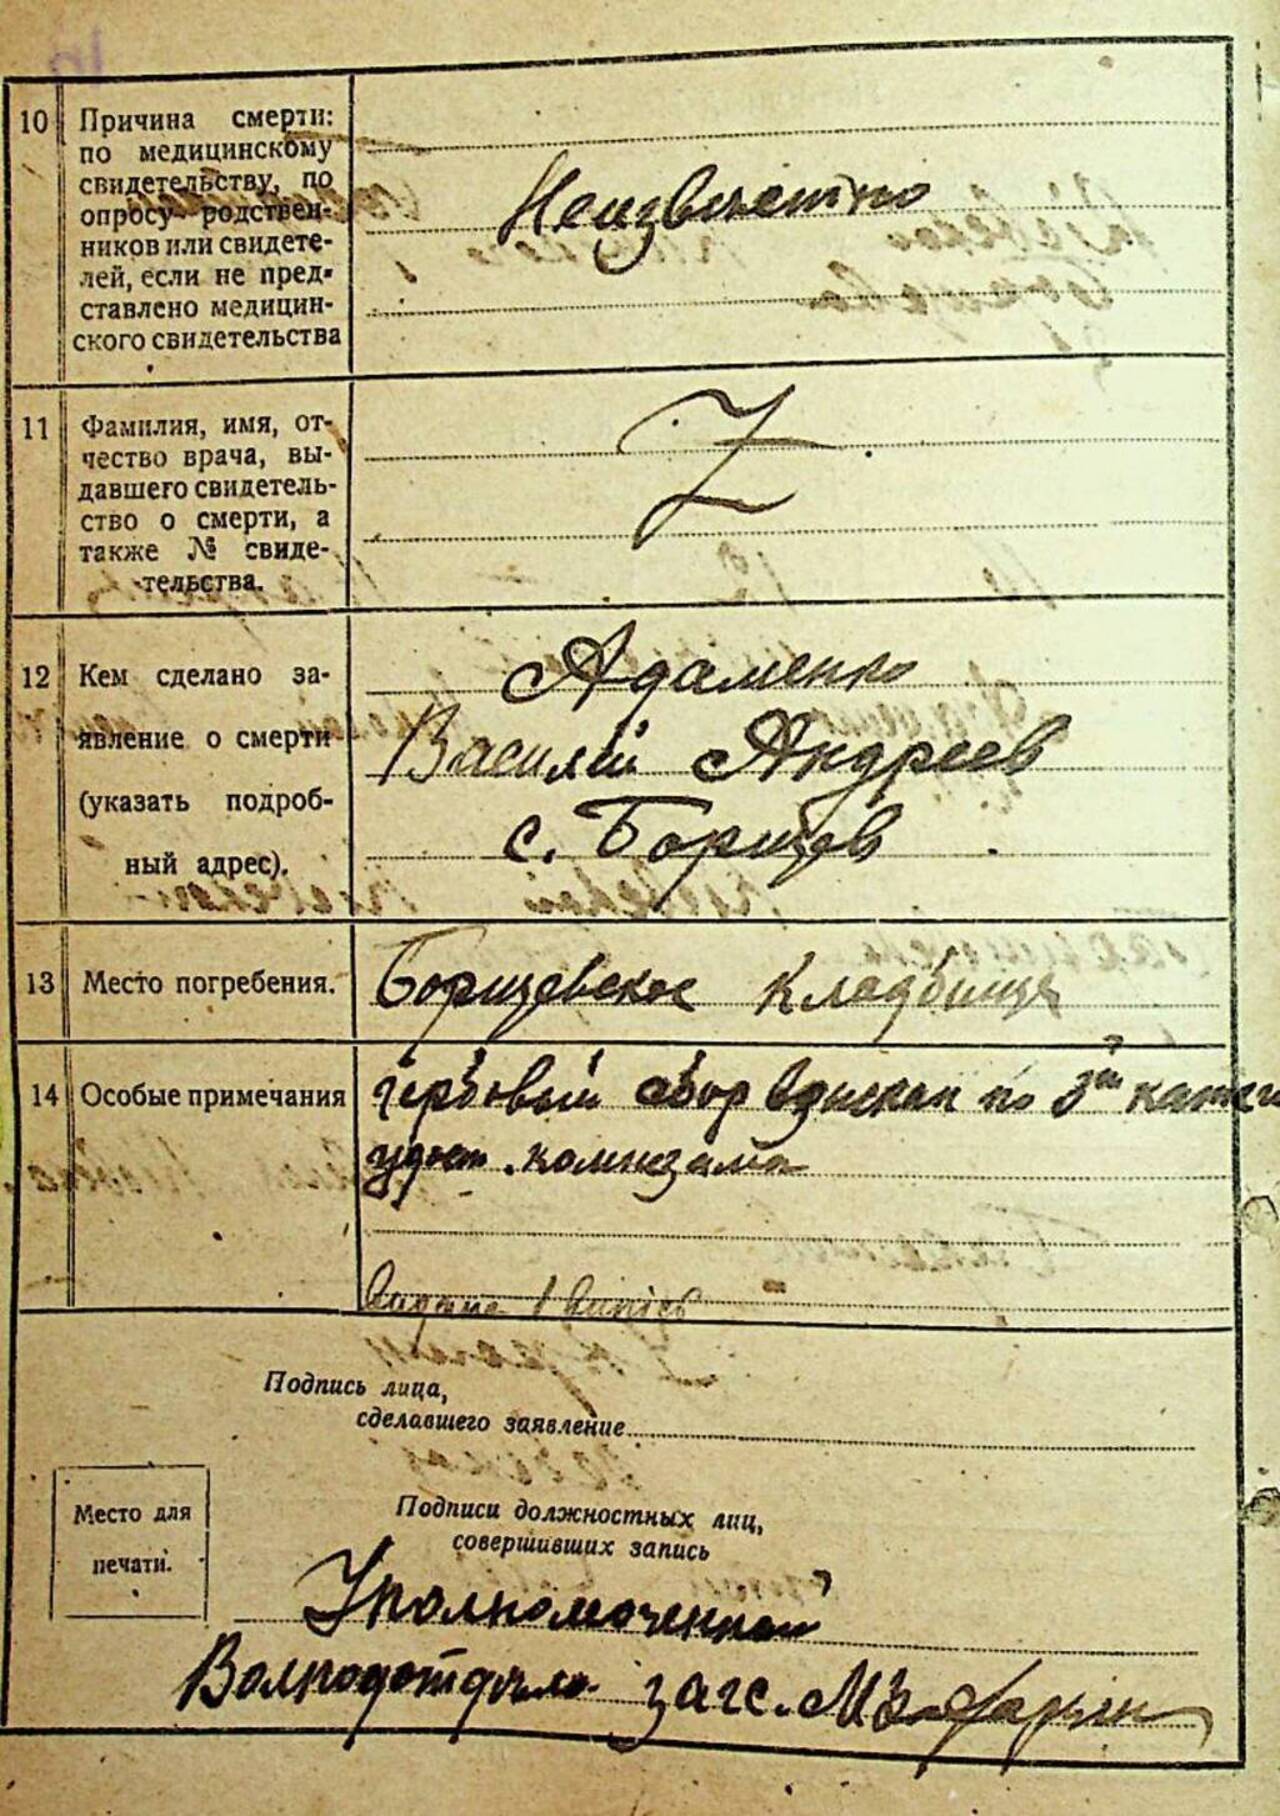 10
Причина смерти:
по медицинскому
свидетельству, по
опросу родствен-
ников или свидете-
лей, если не пред-
ставлено медицин-
ского свидетельства
Неизвестно
11
Фамилия, имя, от-
чество врача, вы-
давшего свидетель-
ство о смерти, а
также № свиде-
тельства.
Z
12
Кем сделано за-
явление о смерти
(указать подроб-
ный адрес).
Адаменко
Василий Андреев
с. Борщев
13
Место погребения.
Борщевское кладбище
14
Особые примечания
гербовый сбор взыскан по
удост.
Подпись лица,
сделавшего заявление
Место для
печати.
Подписи должностных лиц,
совершивших запись
Уполномоченный
Волподотдела загс.